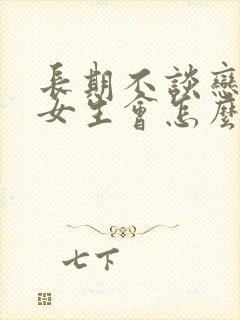 長期不談戀
女生會怎麼
七下